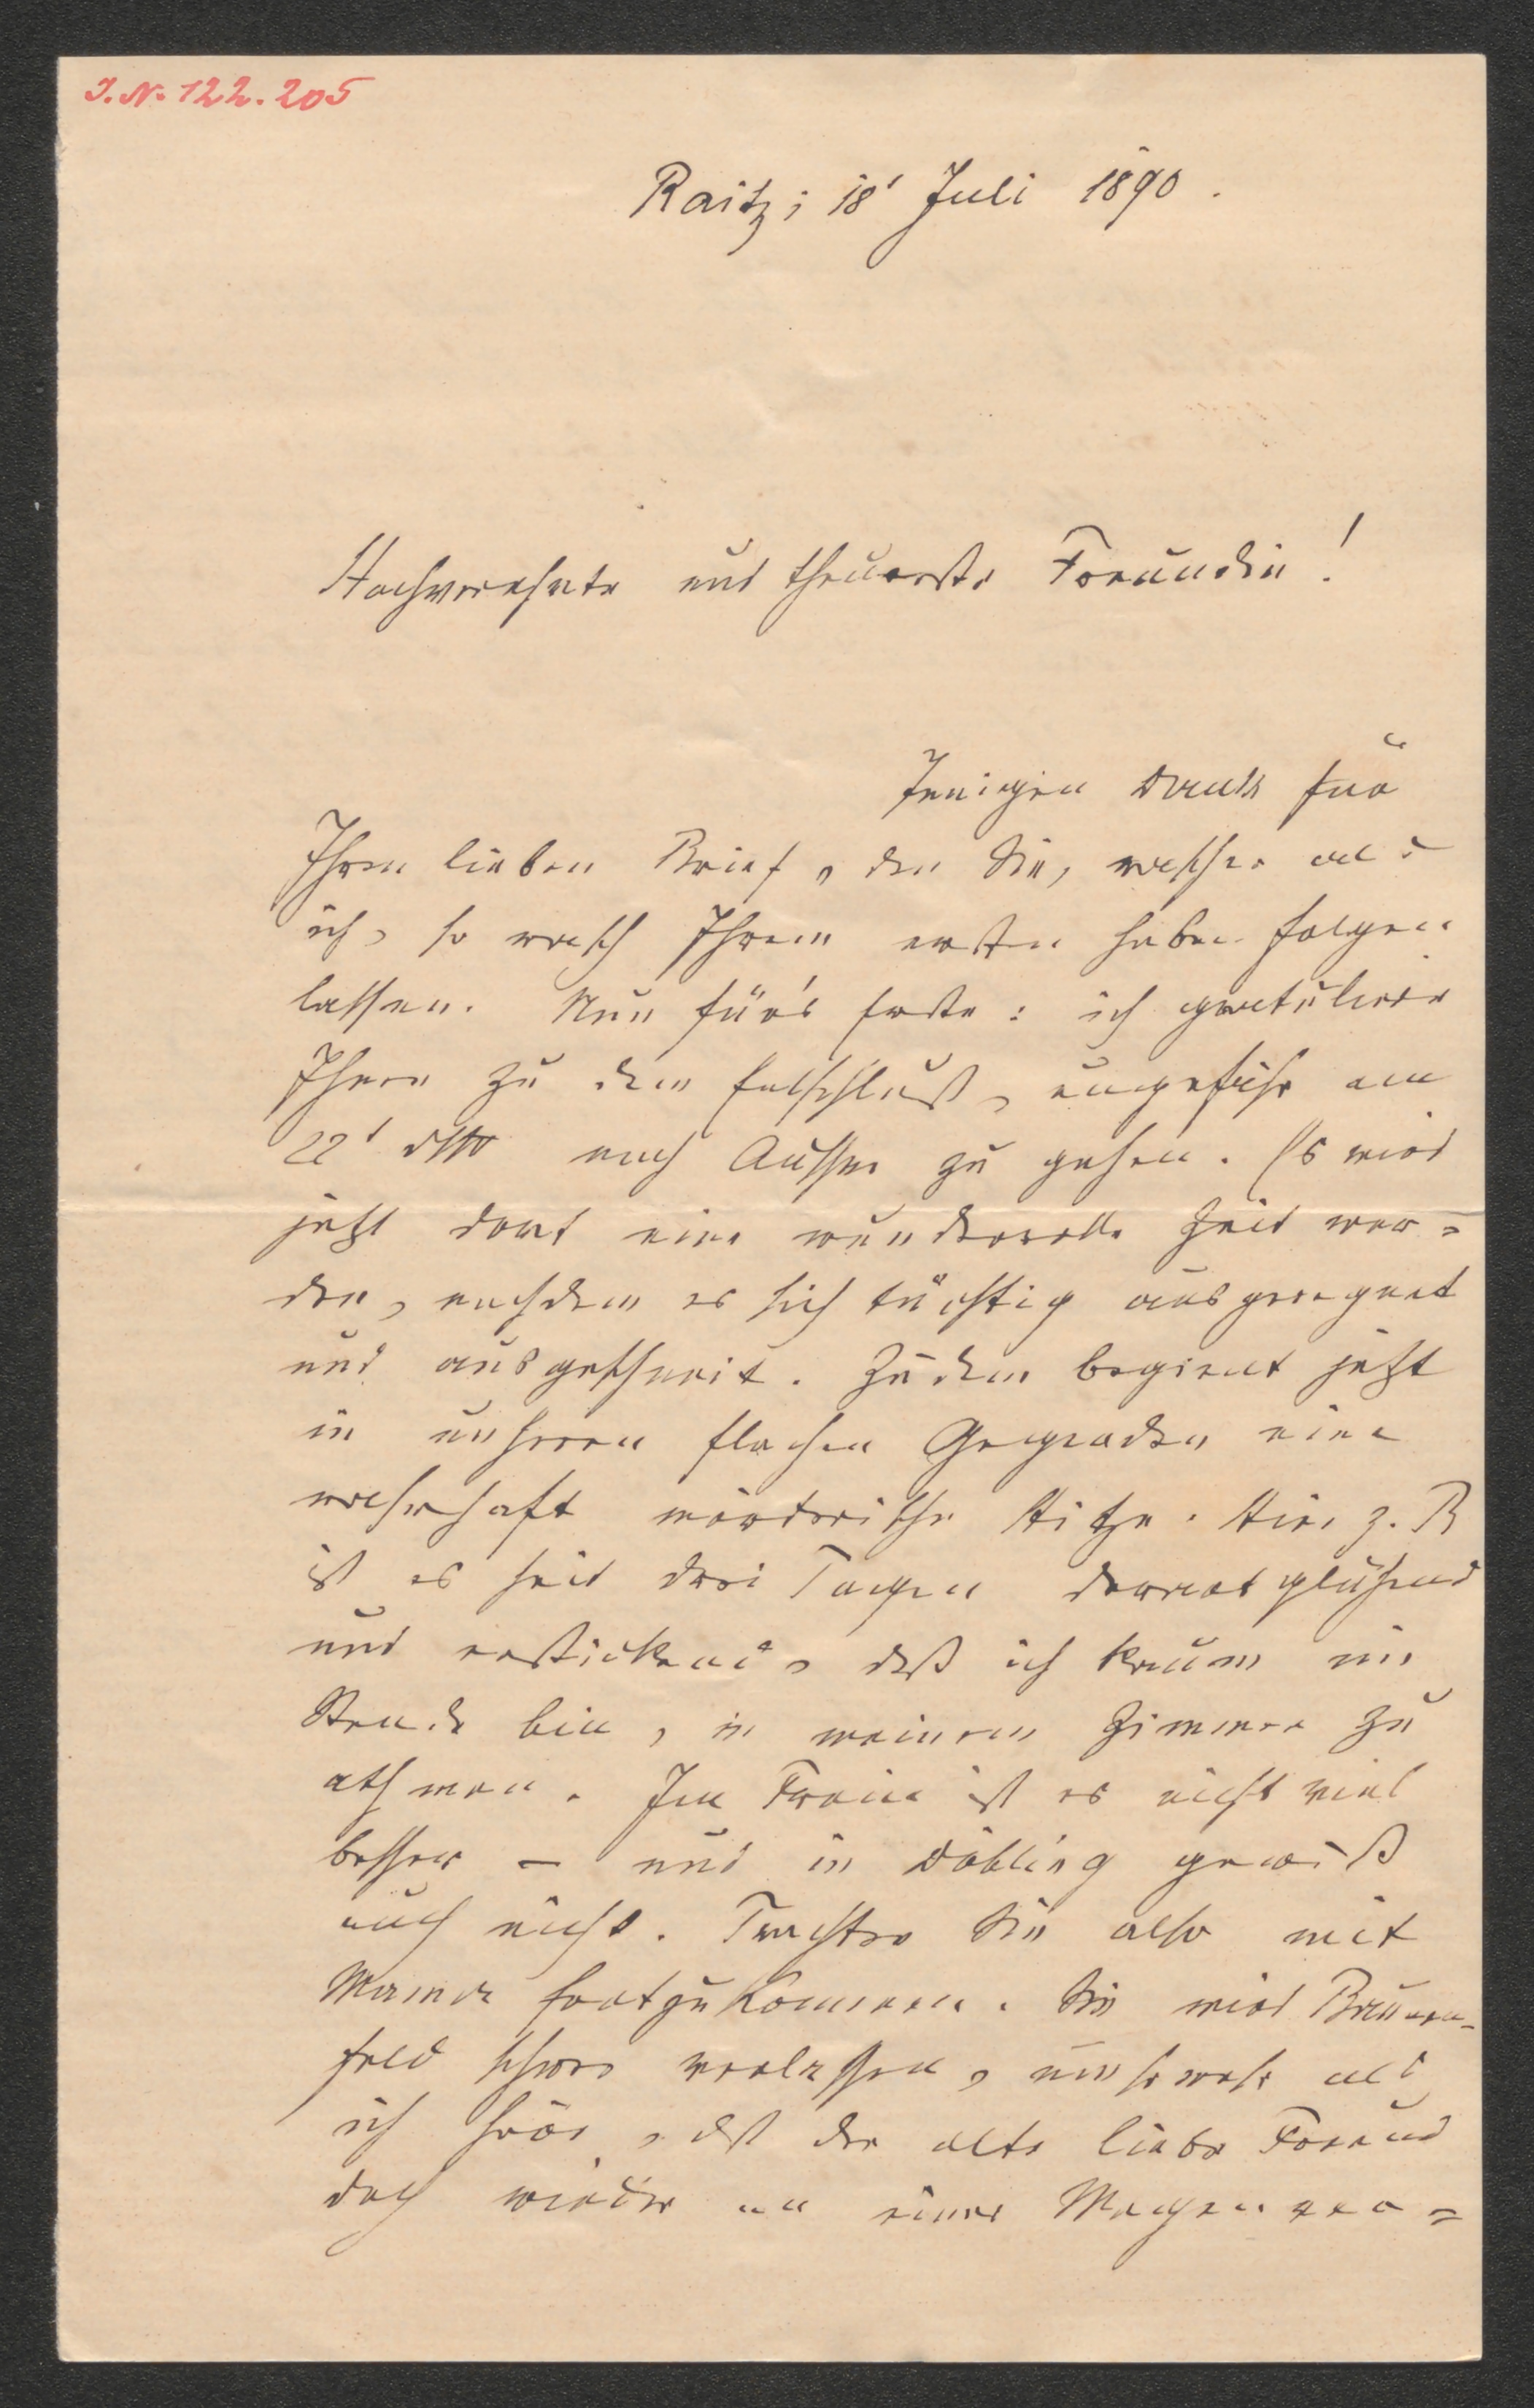 J.N. 122.205
Raitz, 18' Juli 1890.
Hochverehrte und theuerste Freundin!
Innigen Dank für
Ihren lieben Brief, den Sie, rascher als
ich, so rasch Ihrem ersten haben folgen
lassen. Nun für's Erste: ich gratulire
Ihnen zu dem Entschluß, ungefähr am
22' dtto nach Aussee zu gehen. Es wird
jetzt dort eine wundervolle Zeit wer=
den, nachdem es sich tüchtig ausgeregnet
und ausgeschneit. Zudem beginnt jetzt
in unseren flachen Gegenden eine
wahrhaft mörderische Hitze. Hier z. B
ist es seit drei Tagen derart glühend
und erstickend, daß ich kaum im
Stande bin, in meinem Zimmer zu
athmen. Im Freien ist es nicht viel
besser – und in Döbling gewiß
auch nicht. Trachten Sie also mit
Mama fortzukommen. Sie wird Bauern-
feld schwer verlassen, umsomehr als
ich höre, daß der alte liebe Freund
doch wieder an einer Magenver=